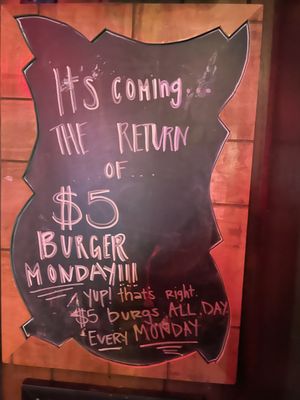 It's coming...
THE RETURN
OF....
$5
BURGER
MONDAY!!!
^ Yup! that's right.
$5 burgs ALL DAY
EVERY MONDAY